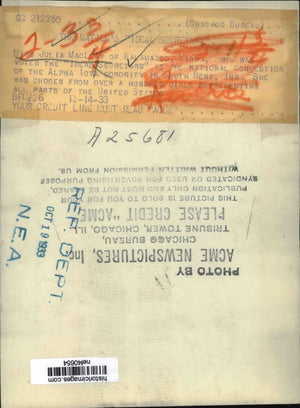 CG 212755 (CHICAGO BUREAU)
THE NATION'S "LOCAL SECRETARY"
MISS JULIA MACI OF KALAMAZOO, MICH., WHO WAS
VOTED THE "IDEAL SECRETARY" THE NATIONAL CONVENTION
OF THE ALPHA IOTA SORORITY SOUTH BEND, IND. SHE
WAS CHOSEN FROM OVER A HUNDRED REPRESENTING
ALL PARTS OF THE UNITED
-14-33
YOUR CREDIT LINE MUST READ
A25681
PHOTO BY
ACME NEWSPICTURES, Inc.
CHICAGO BUREAU,
TRIBUNE TOWER, CHICAGO, ILL.
PLEASE CREDIT "ACME"
THIS PICTURE IS SOLD TO YOU FOR YOUR
PUBLICATION ONLY AND MUST NOT BE LOANED,
SYNDICATED OR USED FOR ADVERTISING PURPOSES
WITHOUT WRITTEN PERMISSION FROM US.
REF. DEPT.
OCT 19 1933
N.E.A.
historicimages.com
nef40654